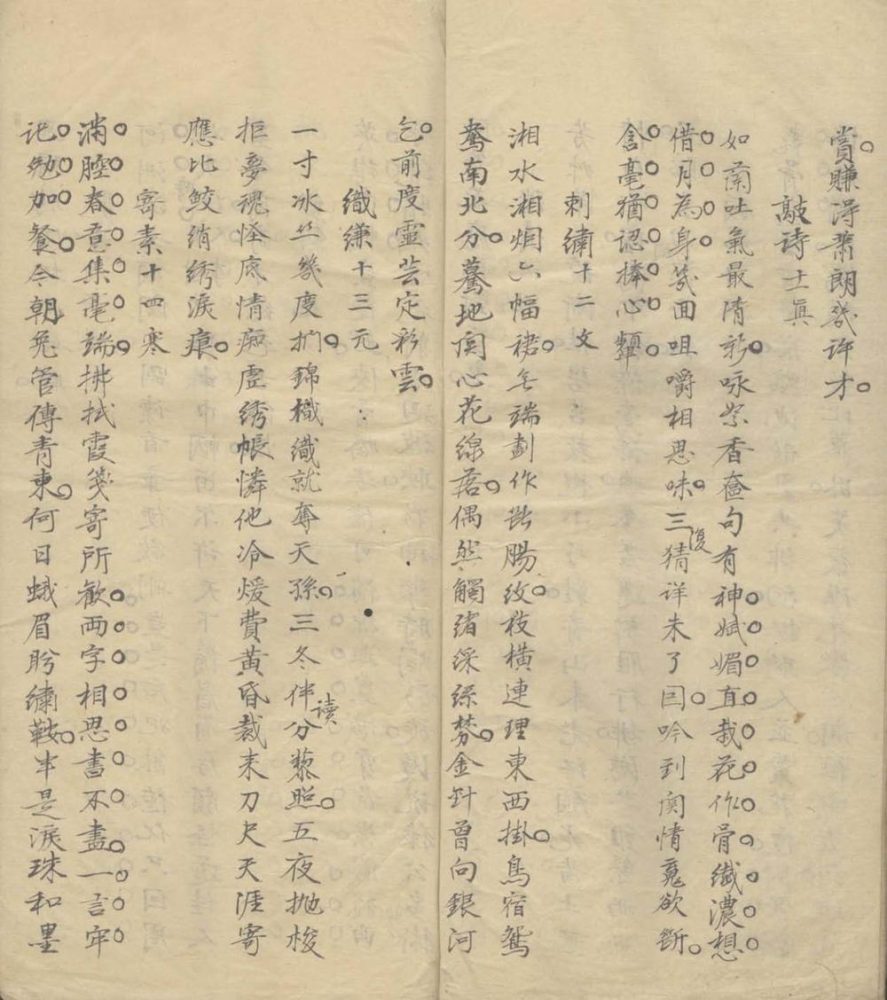 賞賺得蕭郎幾许才
敲诗十一真
如蘭吐氣最清新咏絮香奩句有神娬媚直栽花作骨纖濃想
借月為身幾面咀嚼相思味三復猜详未了因吟到関情魂欲斷
含毫猶認捧心顰
刺繡十二文
湘水湘烟六幅裙無端劃作断腸紋枝横連理東西掛鳥宿鴛
鴦南北分驀地関心花線落偶然觸緒綵絲棼金針曾向銀河
乞前度靈芸定彩雲
織縑十三元
一寸冰丝幾度捫錦機織就奪天孫三冬伴讀分藜照五夜抛梭
拒夢魂怪底情痴虚绣帳憐他冷煖費黄昏裁来刀尺天涯寄
應比鲛绡绣淚痕
寄素十四寒
满腔春意集毫端拂拭霞箋寄所歡两字相思書不盡一言牢
记勉加餐今朝兔管傳青東何日蛾眉盼繡鞍半是淚珠和墨